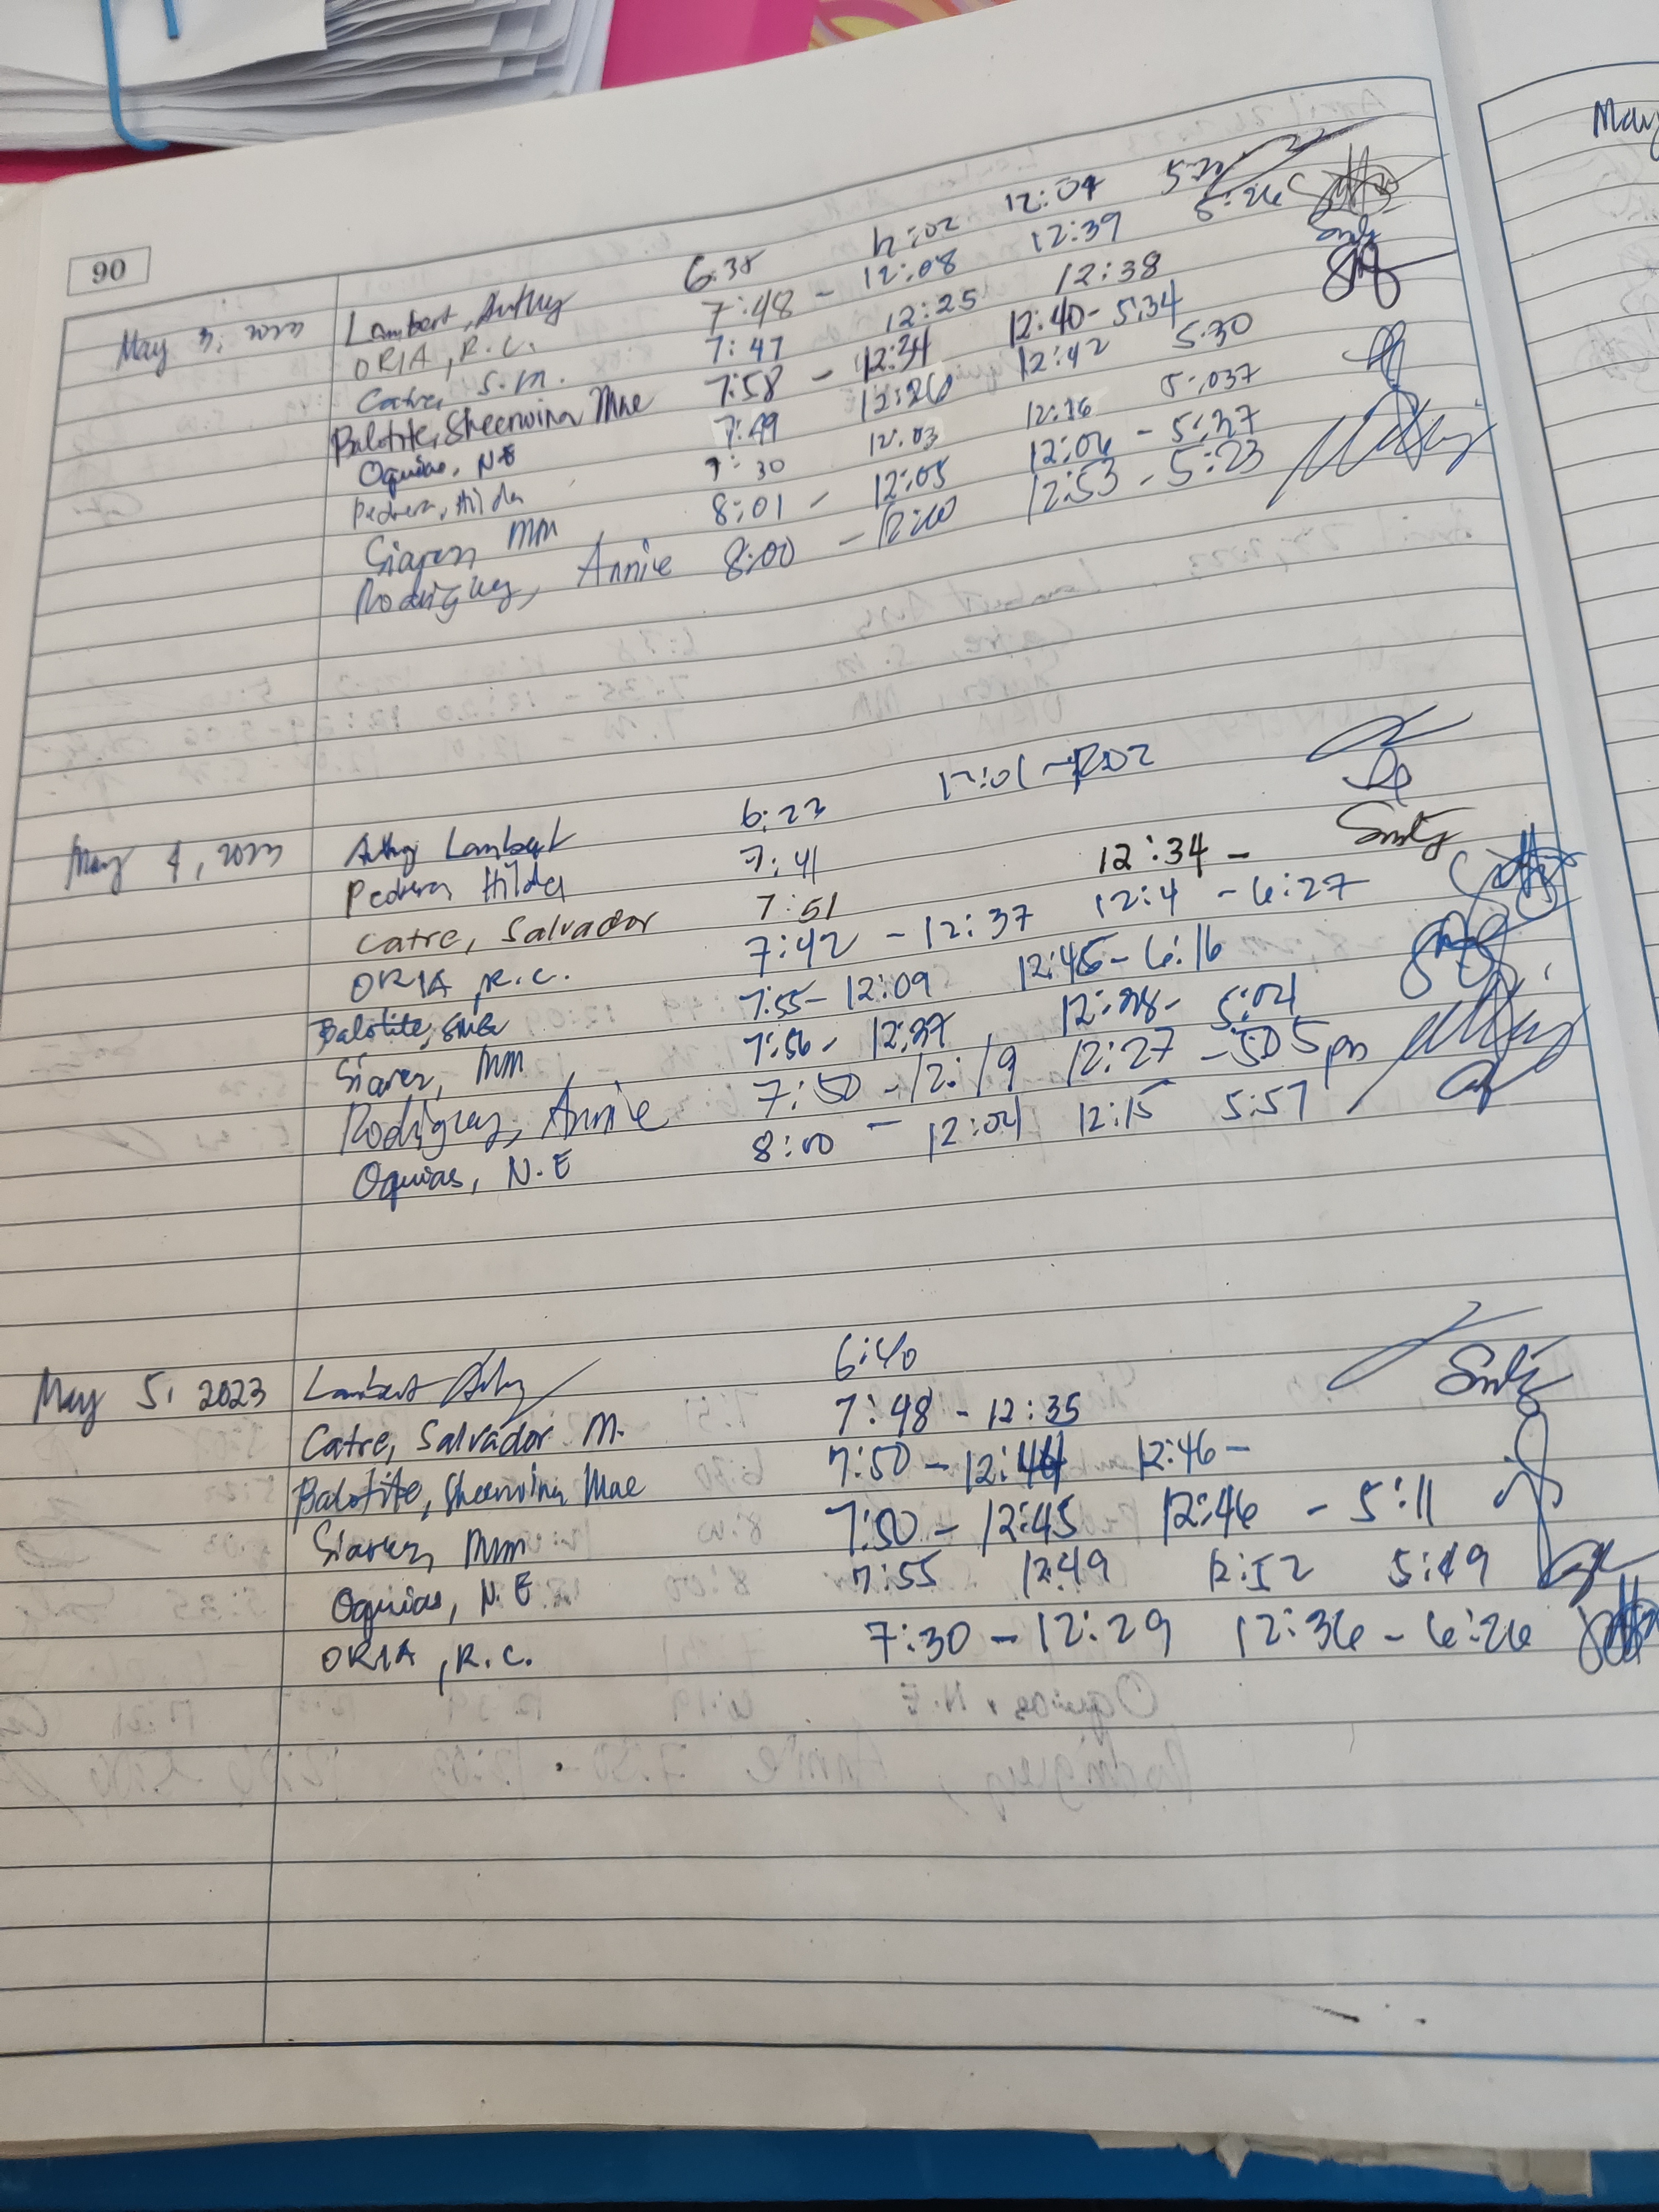 90
May 3, 2023 Lambert, 6:38 12:02 12:04
ORIA, R.C. 7:48 - 12:08 12:39 5:26
Catre, S.M. 7:47 12:25 12:38
Balotite, Sheerwina Mae 7:58 - 12:34 12:40 - 5:34
Oquias, N.E 7:49 12:26 12:42 5:30
Pedrera, Hilda 7:30 12:03 12:16 5:037
Siarez, MM 8:01 - 12:05 12:06 - 5:37
Rodriguez, Annie 8:00 - 12:53 - 5:23
May 4, 2023 Lambert 6:23 12:01 - 12:02
Pedrera, Hilda 7:41
Catre, Salvador 7:51 12:34 -
ORIA, R.C. 7:42 - 12:37 12:4 - 6:27
Balotite, 7:55 - 12:09 12:45 - 6:16
Siarez, MM 7:56 - 12:37 12:38 - 5:04
Rodriguez, Annie 7:50 - 12:19 12:27 - 505 pm
Oquias, N.E 8:00 - 12:04 12:15 5:57
May 5, 2023 Lambert 6:40
Catre, Salvador M. 7:48 - 12:35
Balotite, Sheerwina Mae 7:50 - 12:44 12:46 -
Siarez, MM 7:50 - 12:45 12:46 - 5:11
Oquias, N.E 7:55 12:49 12:52 5:49
ORIA, R.C. 7:30 - 12:29 12:36 - 6:26
May